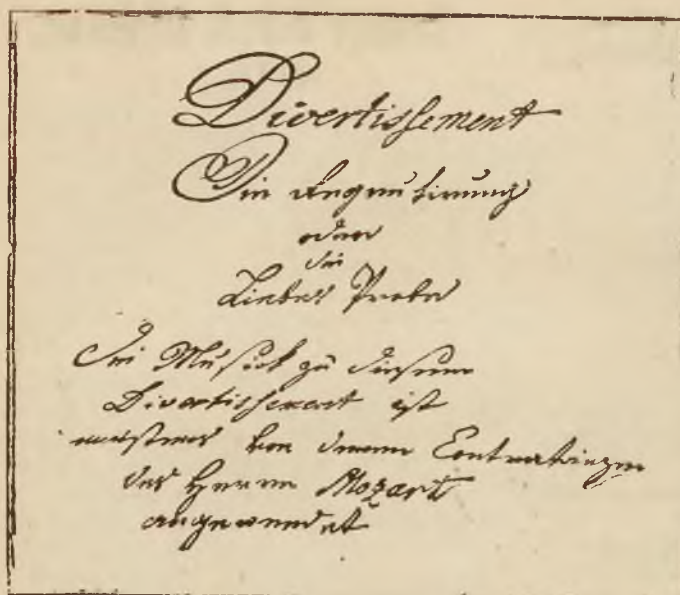 Divertissement
Die Recrutirung
oder
die
Liebes Probe
Die Musick zu diesem
Divertissement ist
von denen Contratänzen
des Herrn Mozart
angewendet